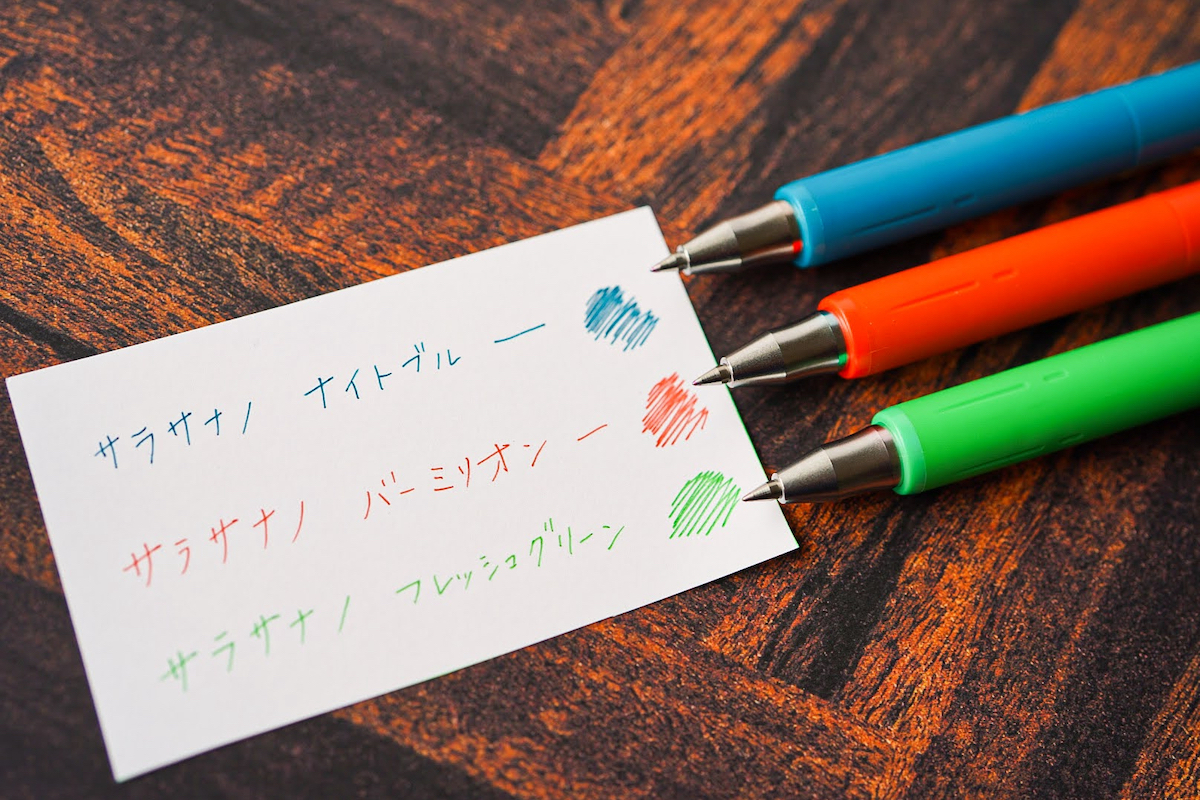 サラサナノ ナイトブルー
サラサナノ バーミリオン ー
サラサナノ フレッシュグリーン